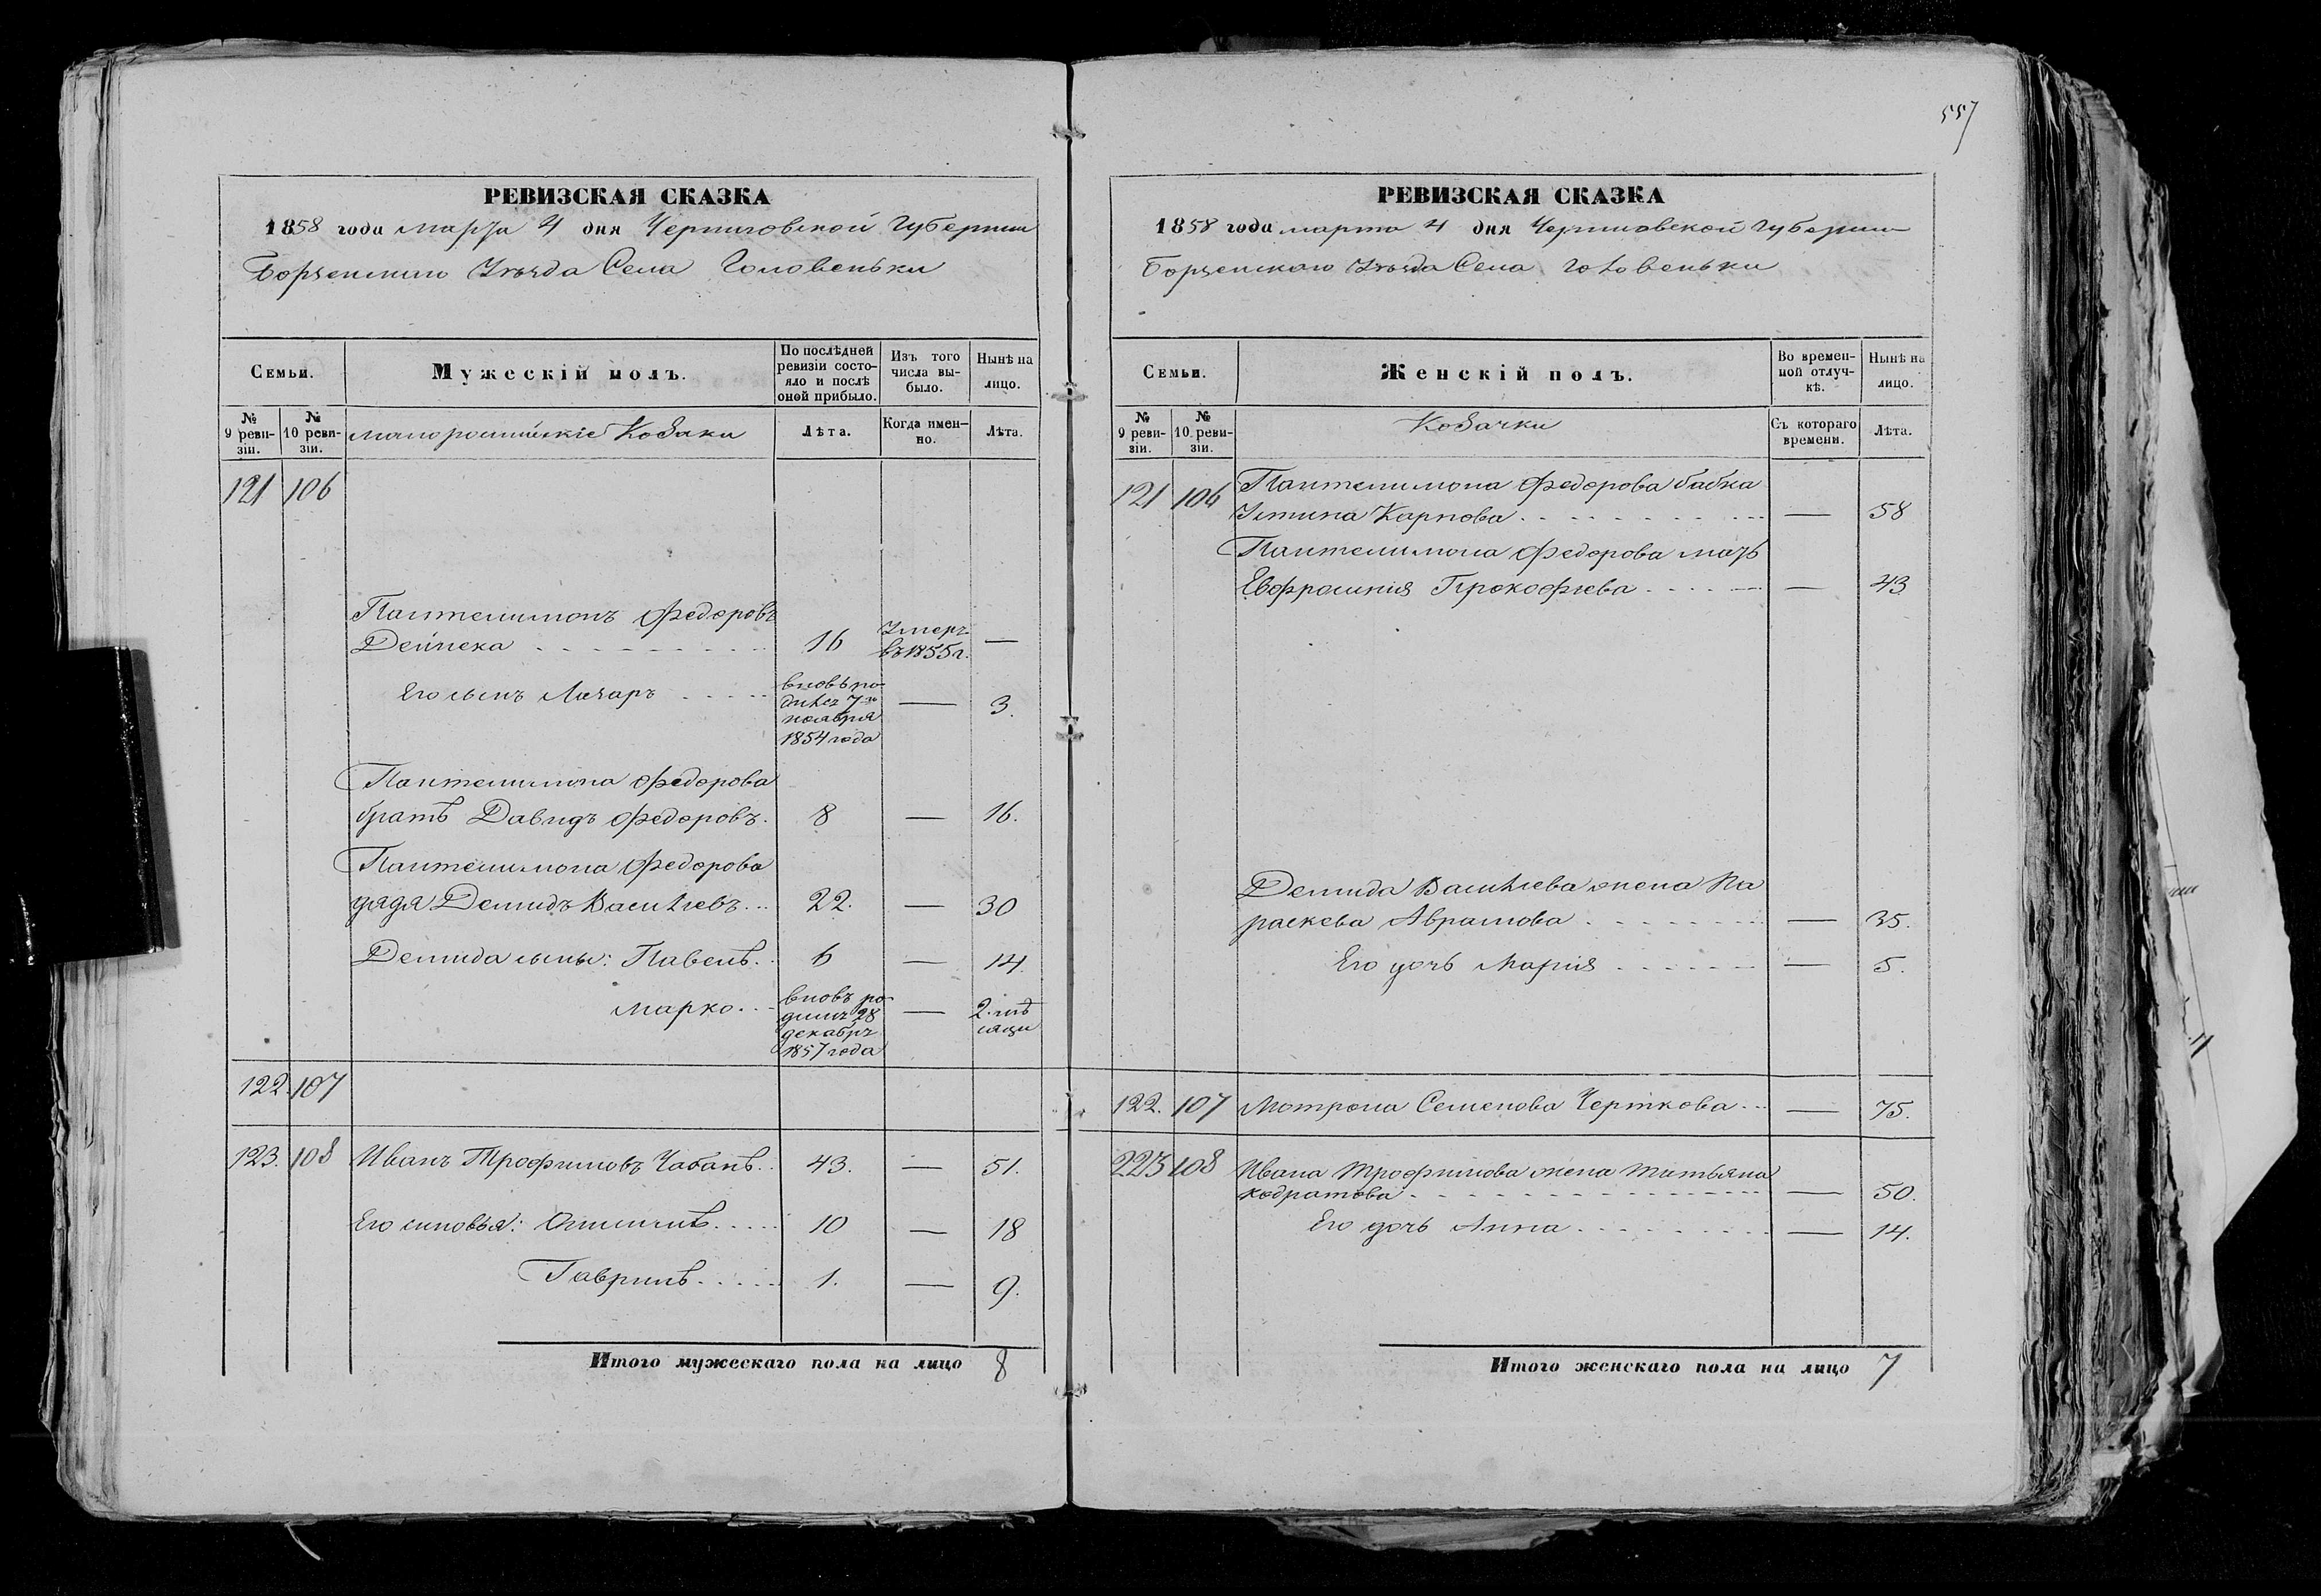 557
РЕВИЗСКАЯ СКАЗКА
1858 года марта 4 дня Черниговской Губернии
Борзенского Уѣзда Села Головеньки
Семьи.
Мужескій полъ.
По послѣдней ревизіи состояло и послѣ оной прибыло.
Изъ того числа выбыло.
Нынѣ на лицо.
№ 9 ревизіи.
№ 10 ревизіи.
малороссійскіе Козаки
Лѣта.
Когда именно.
Лѣта.
121 106
Пантелимонъ Федоровъ
Дейнека 16 Умеръ въ 1855 г. —
Его сынъ Лазарь вновь родился 7го ноября 1854 года — 3.
Пантелимона Федорова
братъ Давидъ Федоровъ. 8 — 16.
Пантелимона Федорова
дядя Демидъ Васильевъ... 22. — 30
Демида сыны: Павелъ.. 6 — 14.
Марко... вновь родился 28 декабря 1857 года — 2. мѣсяца
122. 107
123. 108 Иванъ Трофимовъ Чабанъ.. 43. — 51.
Его синовья: 10 — 18
Гаврилъ..... 1. — 9.
Итого мужескаго пола на лицо 8
РЕВИЗСКАЯ СКАЗКА
1858 года марта 4 дня Черниговской Губернии
Борзенского Уѣзда Села Головеньки
Семьи.
Женскій полъ.
Во временной отлучкѣ.
Нынѣ на лицо.
№ 9 ревизіи.
№ 10 ревизіи.
Козачки
Съ котораго времени.
Лѣта.
121 106 Пантелимона Федорова бабка
Устина Карпова — 58
Пантелимона Федорова мать
Евфросинія Прокофьева — 43
Демида Васильева жена Па
раскева Аврамова — 35.
Его дочь Марія — 5.
122. 107 Мотрона Семенова Черткова — 75.
223 108 Ивана Трофимова жена Татьяна
Кодратова — 50.
Его дочь Анна — 14.
Итого женскаго пола на лицо 7